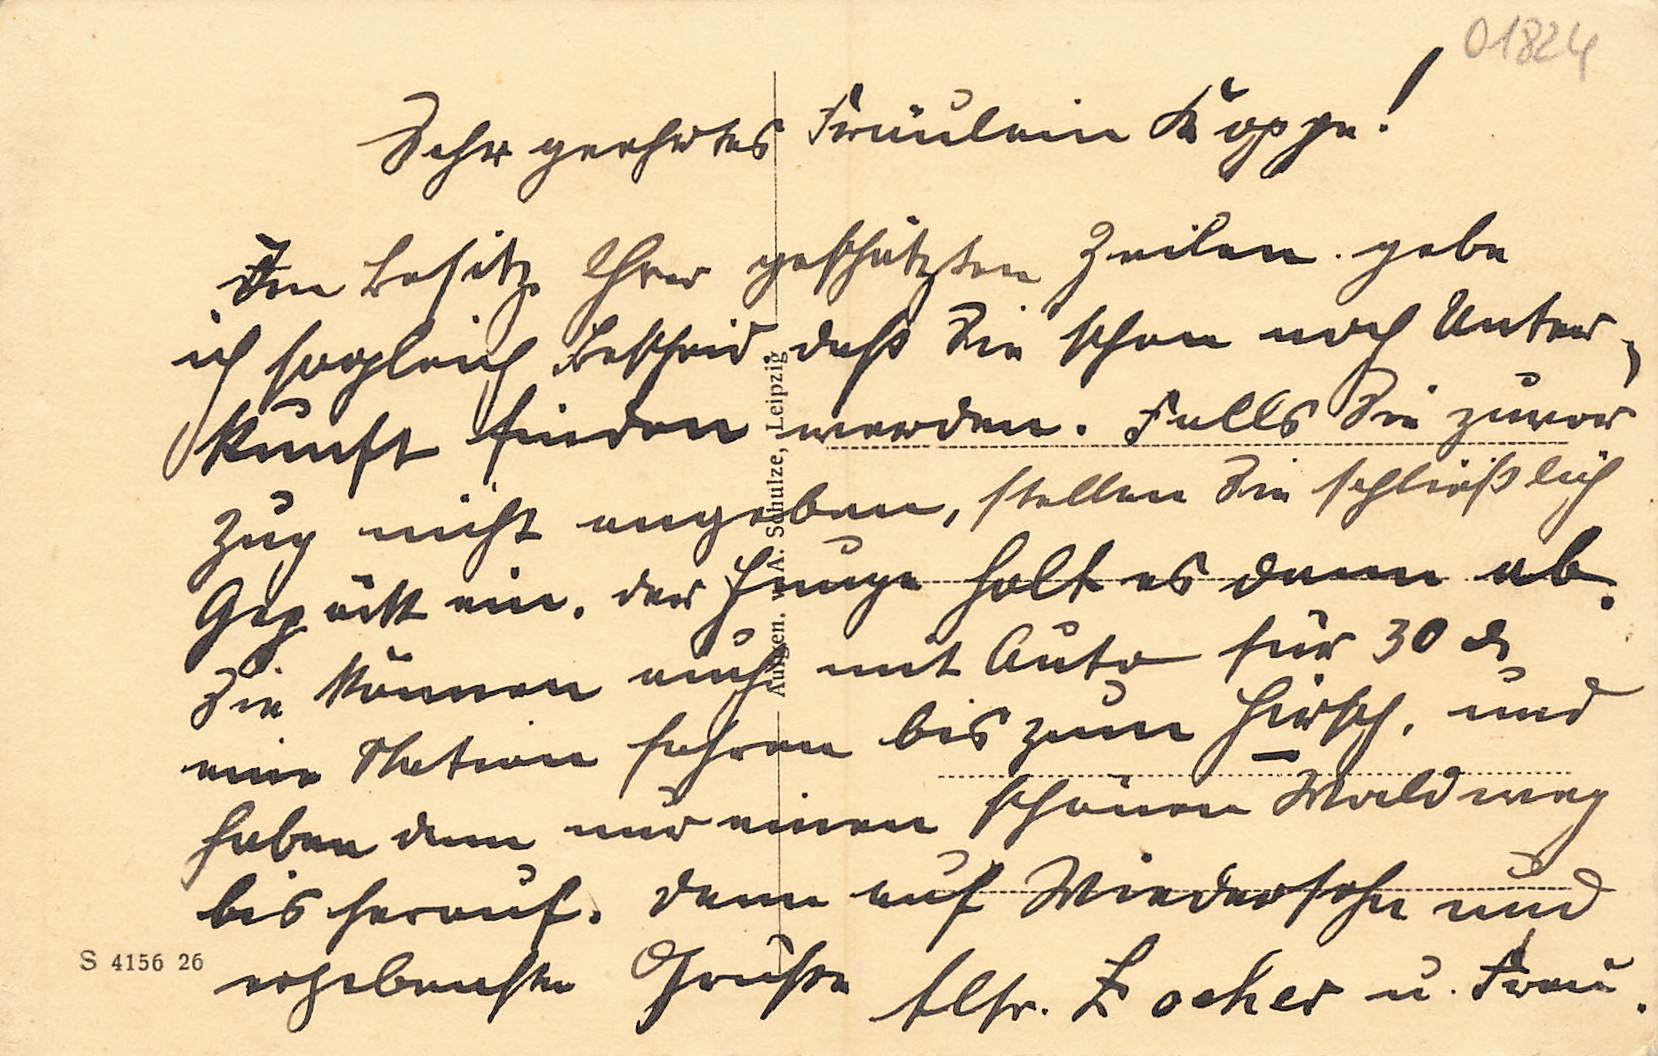 01824
Sehr geehrtes Fräulein Koppe!
Im Besitz Ihrer geschätzten Zeilen gebe
ich sogleich Bescheid daß Sie schon noch Unter-
kunft finden werden. Falls Sie zuvor
Zug nicht angeben, stellen Sie schließlich
Gepäck ein. der Junge holt es dann ab.
Sie können auch mit Auto für 30 ₰
eine Station fahren bis zum Hirsch. und
haben dann nur einen schönen Waldweg
bis herauf. Dann auf Wiedersehn und
ergebenste Grüße Alfr. Zocher u. Frau.
Aufgen. v. A. Schulze, Leipzig
S 4156 26